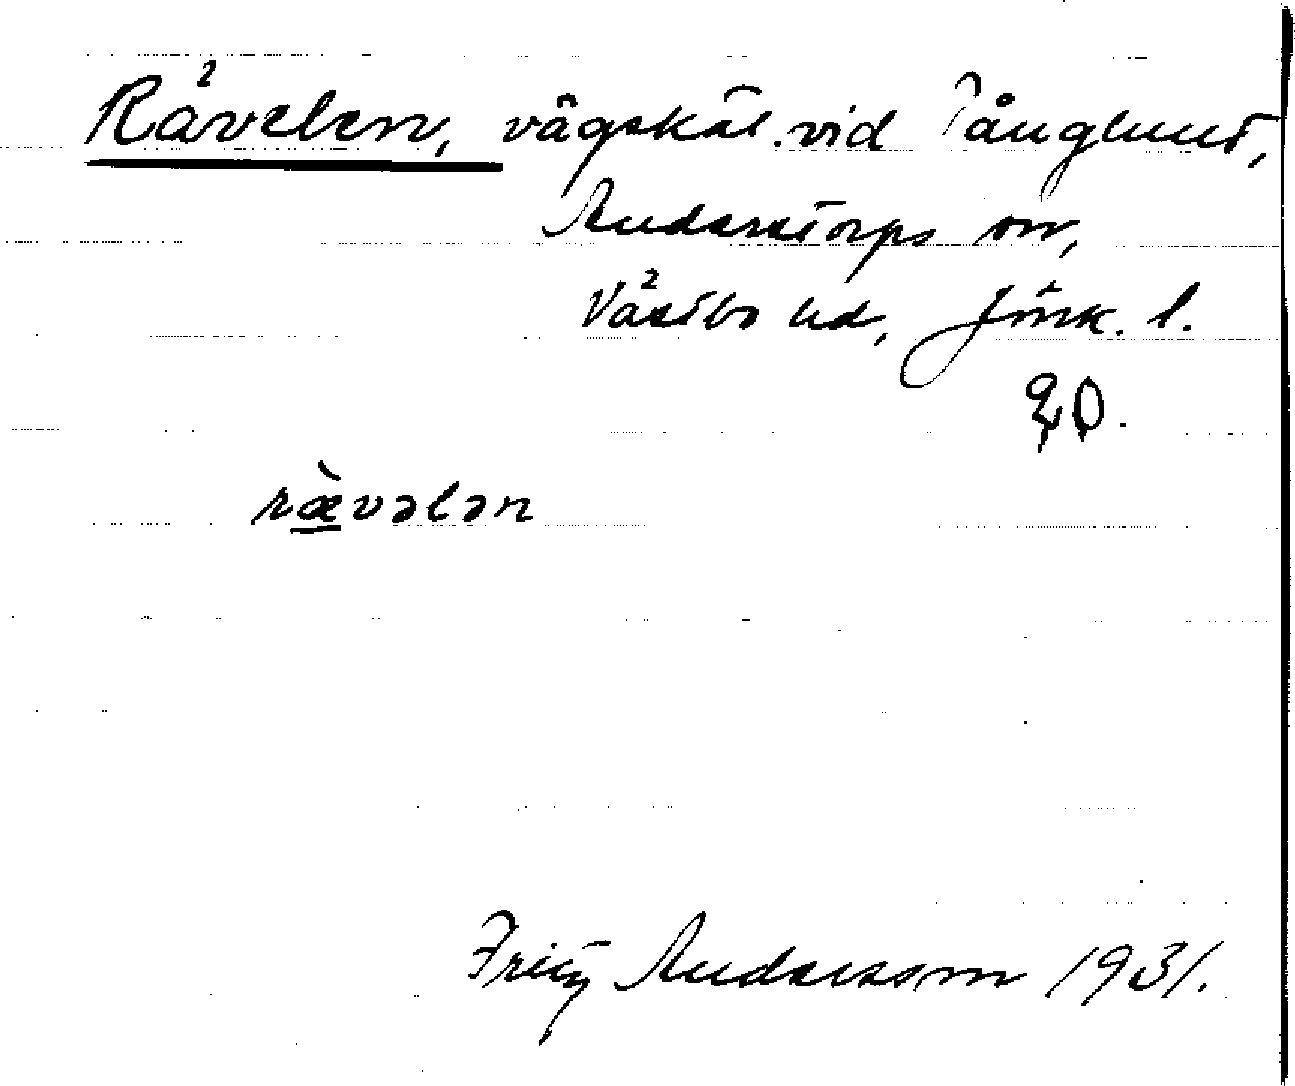 Rävelen, vägskäl vid Tånghult,
Anderstorps sn,
Västbo hd, Jönk. l.
rævələn
Fritz Andersson 1931.